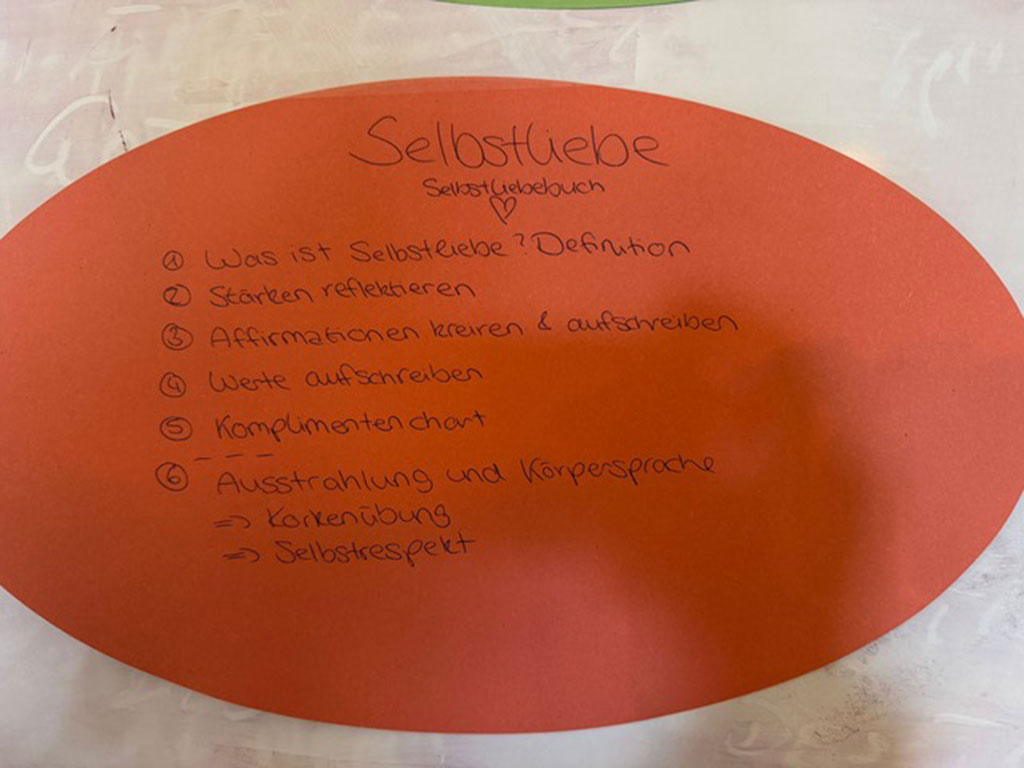 Selbstliebe
Selbstliebebuch
♡
① Was ist Selbstliebe? Definition
② Stärken reflektieren
③ Affirmationen kreiren & aufschreiben
④ Werte aufschreiben
⑤ Komplimentenchart
- - -
⑥ Ausstrahlung und Körpersprache
=> Korkenübung
=> Selbstrespekt